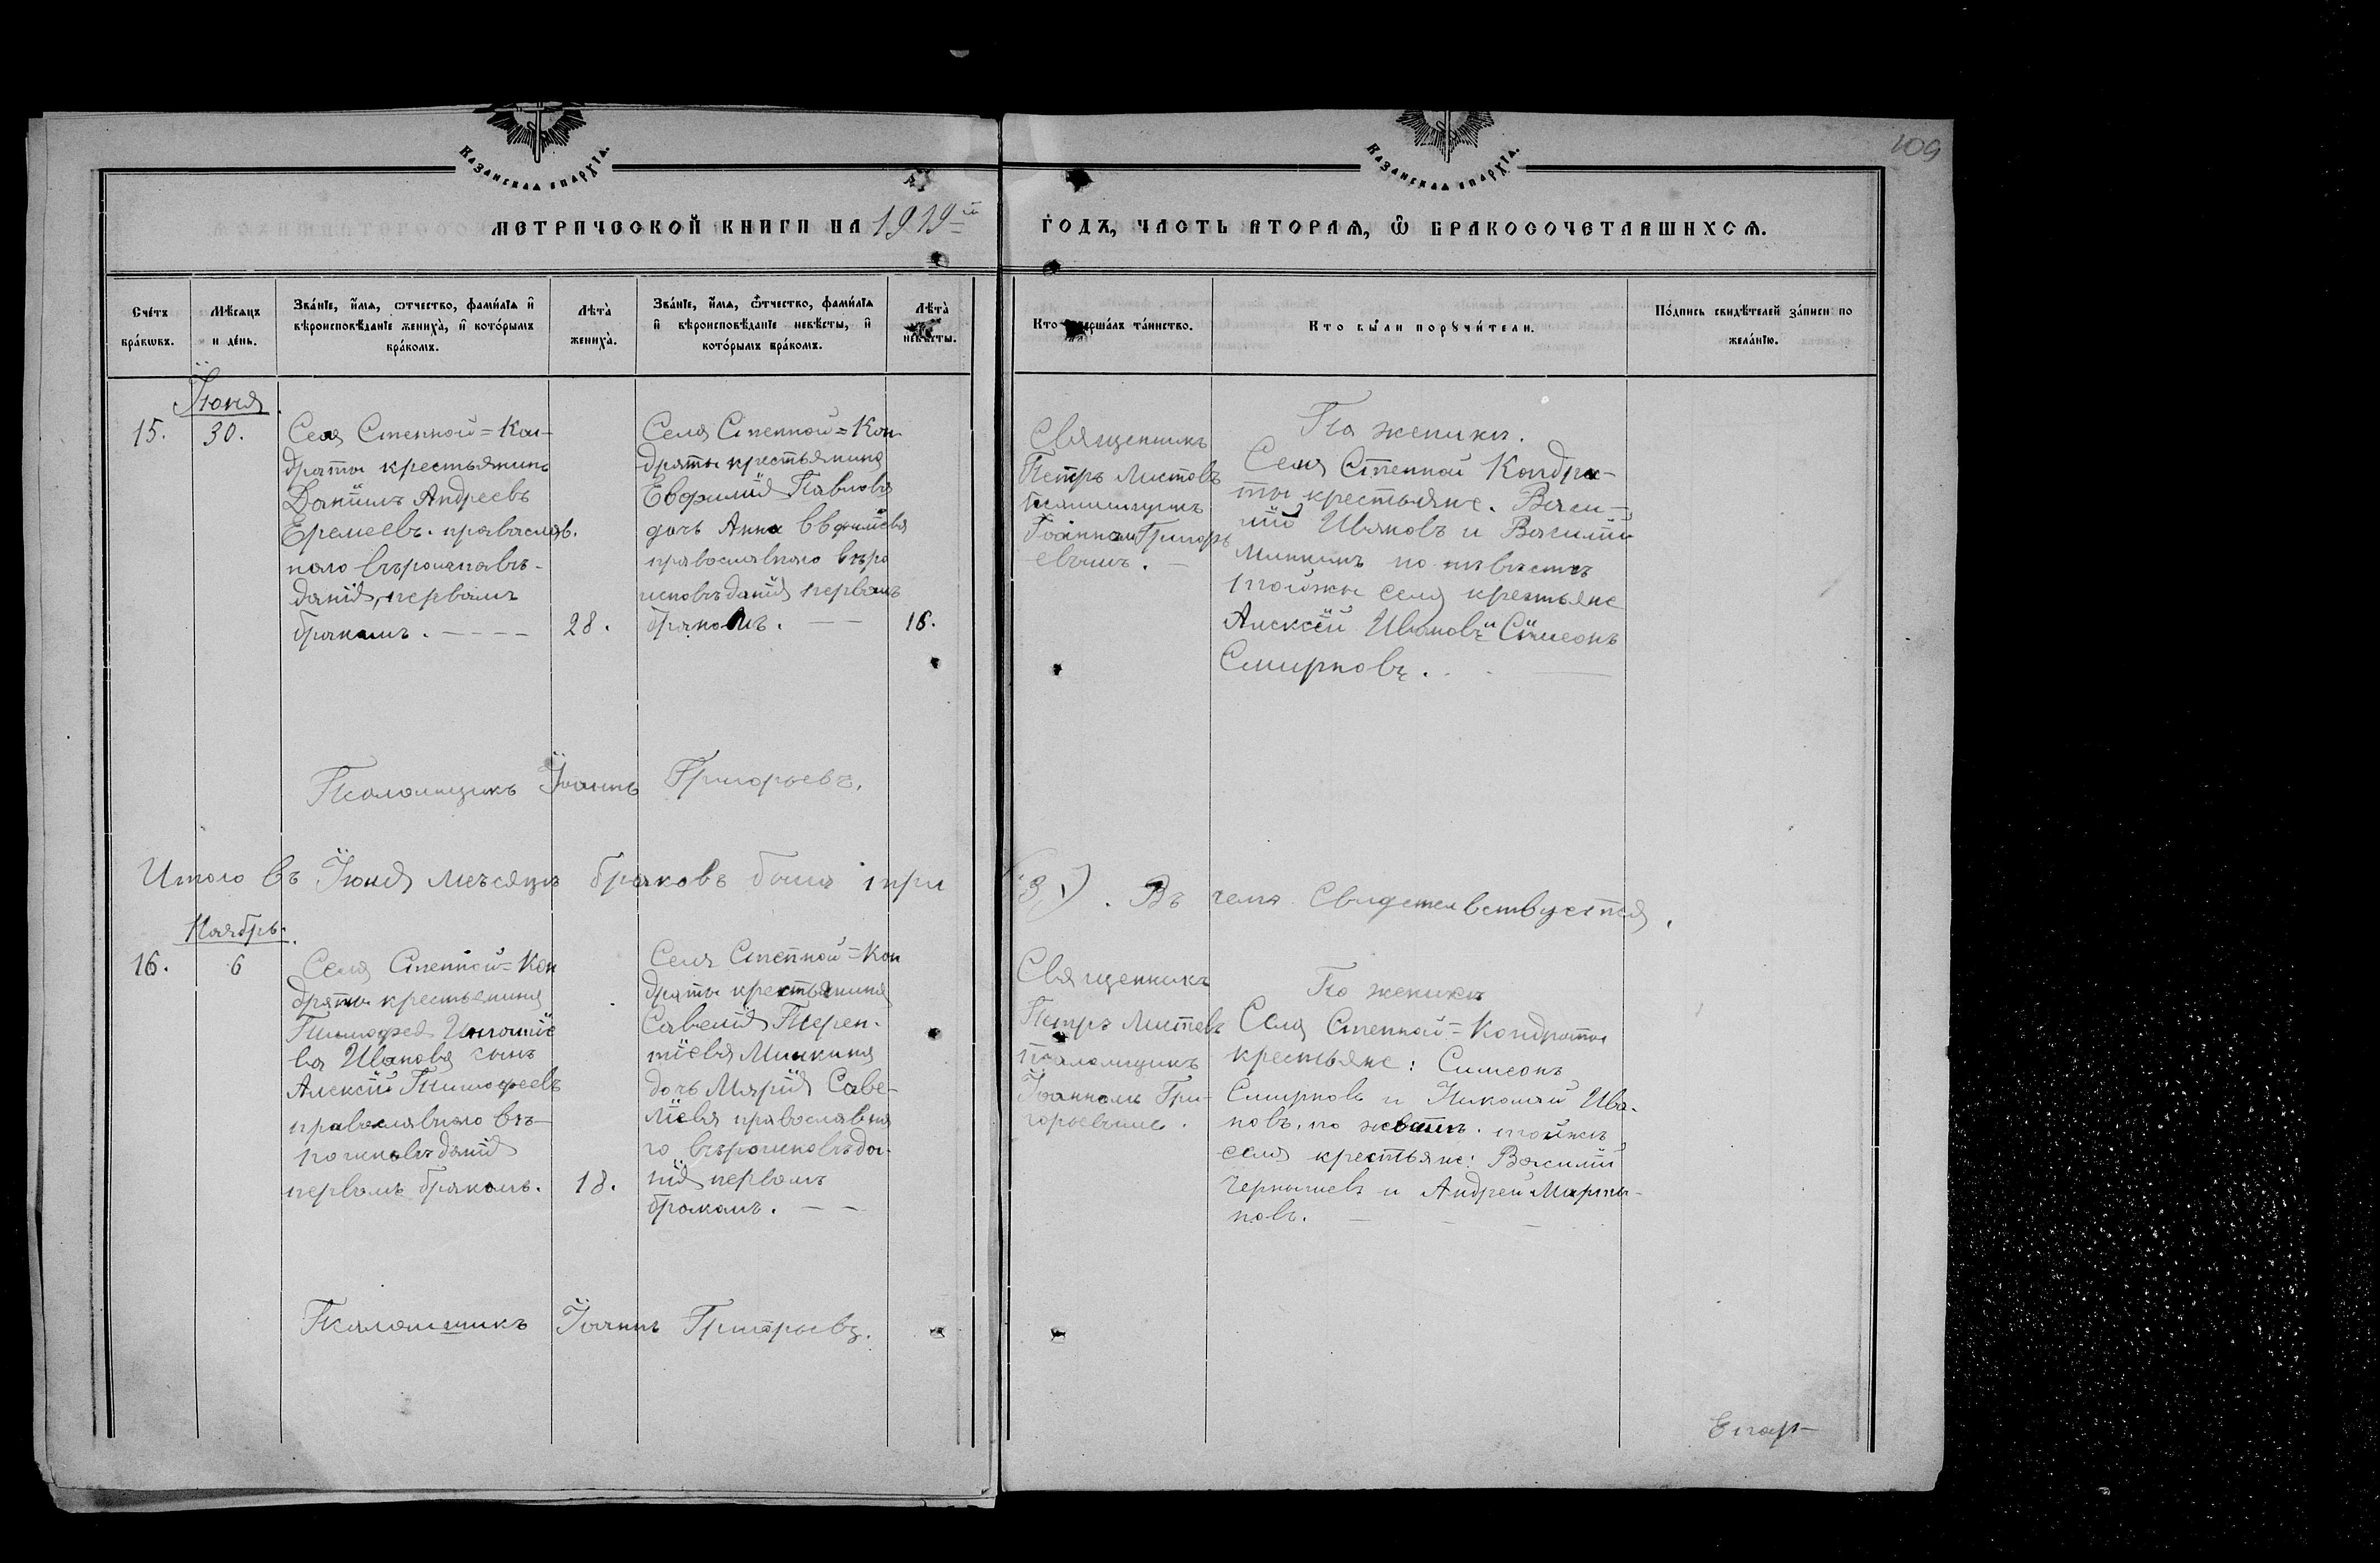 109
Казанская епархїа.
Казанская епархїа.
МЕТРИЧЕСКОЙ КНИГИ НА 1919й
ГОДЪ, ЧАСТЬ ВТОРАѦ, Ѡ БРАКОСОЧЕТАВШИХСѦ.
Счётъ бра́кѡвъ.
Мѣ́сѧцъ и де́нь.
Зва́нїе, и́мѧ, ѻтчество, фами́лїѧ и҆ вѣроисповѣ́данїе жениха̀, и҆ кото́рымъ бра́комъ.
Лѣ́та̀ жениха̀.
Зва́нїе, и́мѧ, ѻ́тчество, фами́лїѧ и҆ вѣроисповѣ́данїе невѣ́сты, и҆ кото́рымъ бра́комъ.
Лѣ́та̀ невѣ́сты.
Кто соверша́лъ та́инство.
Кто бы́ли порꙋчи́тели.
По́дпись свидѣ́телей за́писи по жела́нїю.
Іюня.
15.
30.
Села Степной=Кон-
драты крестьянинъ
Данїилъ Андреевъ
Еремеевъ. православ.
наго вѣроисповѣ-
данія, первымъ
бракомъ.
28.
Села Степной=Кон
драты крестьянина
Евфимія Павлова
дочь Анна Евфимїева
православнаго вѣро
исповѣданія первымъ
бракомъ.
16.
Священникъ
Петръ Листовъ
псаломщикъ
Іоанномъ Григорь
евымъ.
По женихѣ.
Села Степной Кондра-
ты крестьяне. Васи-
лій Ивановъ и Василій
Минкинъ по невѣстѣ
тойже села крестьяне
Алексѣй Ивановъ и Симеонъ
Смирновъ.
Псаломщикъ Іоаннъ Григорьевъ.
Итого въ Іюня мѣсяцѣ браковъ было три
(3). Въ чемъ Свидетельствуется.
Ноябрь.
16.
6
Села Степной=Кон
драты крестьянина
Тимофея Игнатїе
ва Иванова сынъ
Алексѣй Тимофеевъ
православнаго вѣ-
роисповѣданія
первымъ бракомъ.
18.
Села Степной=Кон
драты крестьянина
Савелія Терен-
тїева Минкина
дочь Марія Саве-
лїева православна
го вѣроисповѣда-
нія первымъ
бракомъ.
Священникъ
Петръ Листовъ
псаломщикъ
Іоанномъ Гри-
горьевымъ.
По женихѣ
Села Степной=Кондраты
крестьяне: Симеонъ
Смирновъ и Николай Ива-
новъ. по тойже
села крестьяне: Василій
Чернышевъ и Андрей Марты-
новъ.
Псаломщикъ Іоаннъ Григорьевъ.